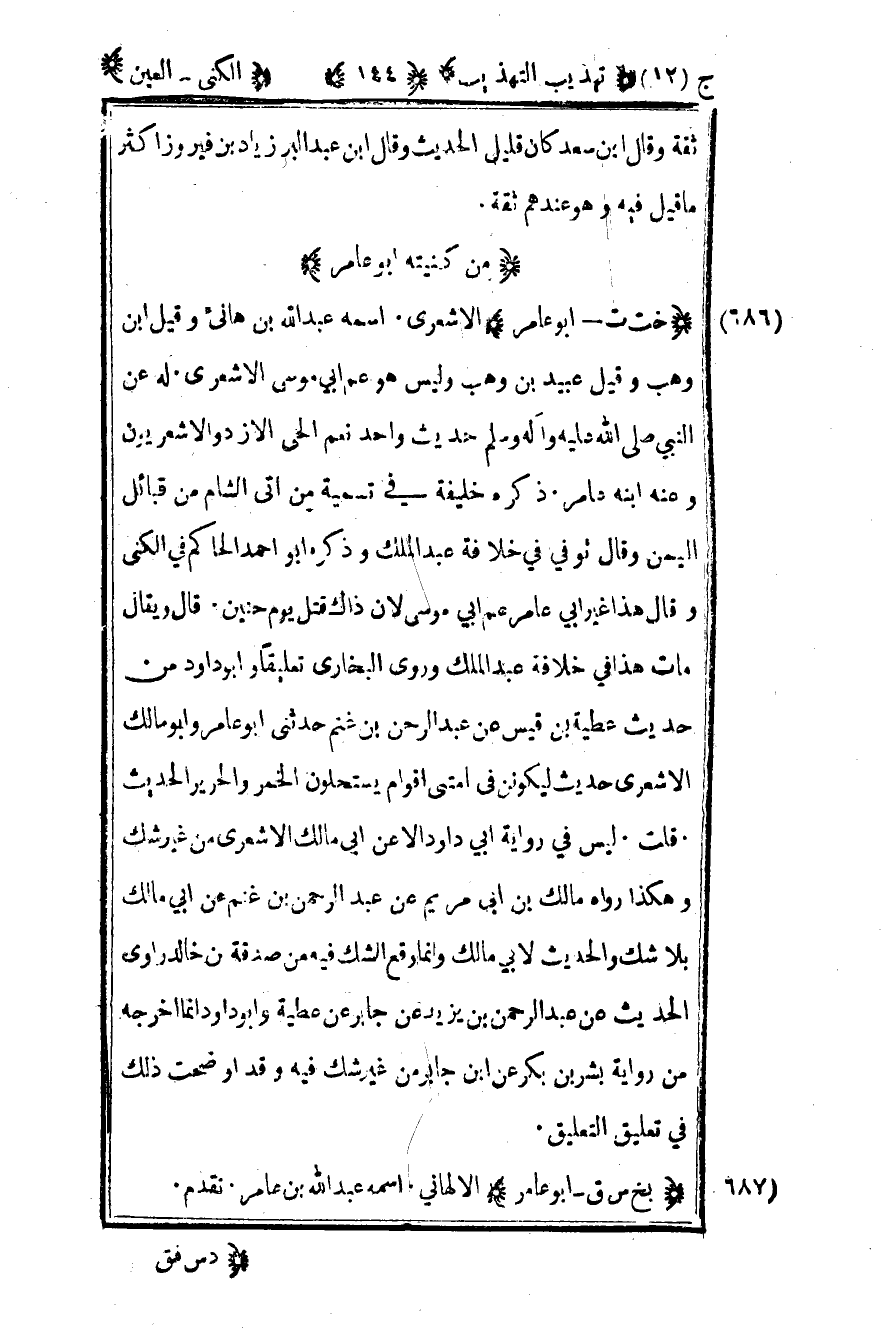 ج (١٢) ﴿ تهذيب التهذيب ﴾ ﴿ ١٤٤ ﴾ ﴿ الكنى - العين ﴾
ثقة وقال ابن سعد كان قليل الحديث وقال ابن عبد البر زياد بن فيروز اكثر
ما قيل فيه و هو عندهم ثقة ٠
﴿ من كنيته ابو عامر ﴾
(٦٨٦) ﴿ خت ت – ابو عامر ﴾ الاشعرى ٠ اسمه عبد الله بن هانئ و قيل ابن
وهب و قيل عبيد بن وهب وليس هو عم ابي موسى الاشعرى ٠ له عن
النبي صلى الله عليه وآله وسلم حديث واحد نعم الحى الازد والاشعريين
و عنه ابنه عامر ٠ ذكره خليفة في تسمية من اتى الشام من قبائل
اليمن وقال توفي في خلافة عبد الملك و ذكره ابو احمد الحاكم في الكنى
و قال هذا غير ابي عامر عم ابي موسى لان ذاك قتل يوم حنين ٠ قال ويقال
مات هذا في خلافة عبد الملك وروى البخارى تعليقاً و ابو داود من
حديث عطية بن قيس عن عبد الرحمن بن غنم حدثنى ابو عامر وابو مالك
الاشعرى حديث ليكونن فى امتى اقوام يستحلون الخمر والحرير الحديث
٠ قلت ٠ ليس في رواية ابي داود الا عن ابى مالك الاشعرى من غير شك
و هكذا رواه مالك بن ابى مريم عن عبد الرحمن بن غنم عن ابي مالك
بلا شك والحديث لابي مالك وانما وقع الشك فيه من صدقة بن خالد راوى
الحديث عن عبد الرحمن بن يزيد عن جابر عن عطية وابو داود انما اخرجه
من رواية بشر بن بكر عن ابن جابر من غير شك فيه و قد اوضحت ذلك
في تعليق التعليق ٠
(٦٨٧) ﴿ بخ س ق – ابو عامر ﴾ الالهاني ٠ اسمه عبد الله بن عامر ٠ تقدم ٠
﴿ د س فق